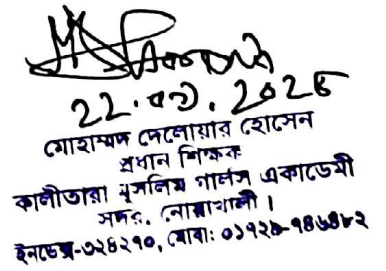 22.02.2025
মোহাম্মদ দেলোয়ার হোসেন
প্রধান শিক্ষক
কালীতারা মুসলিম গার্লস একাডেমী
সদর, নোয়াখালী।
ইনডেক্স-৩২৪২৭০, মোবা: ০১৭২৮-৭৪৬৪৮২